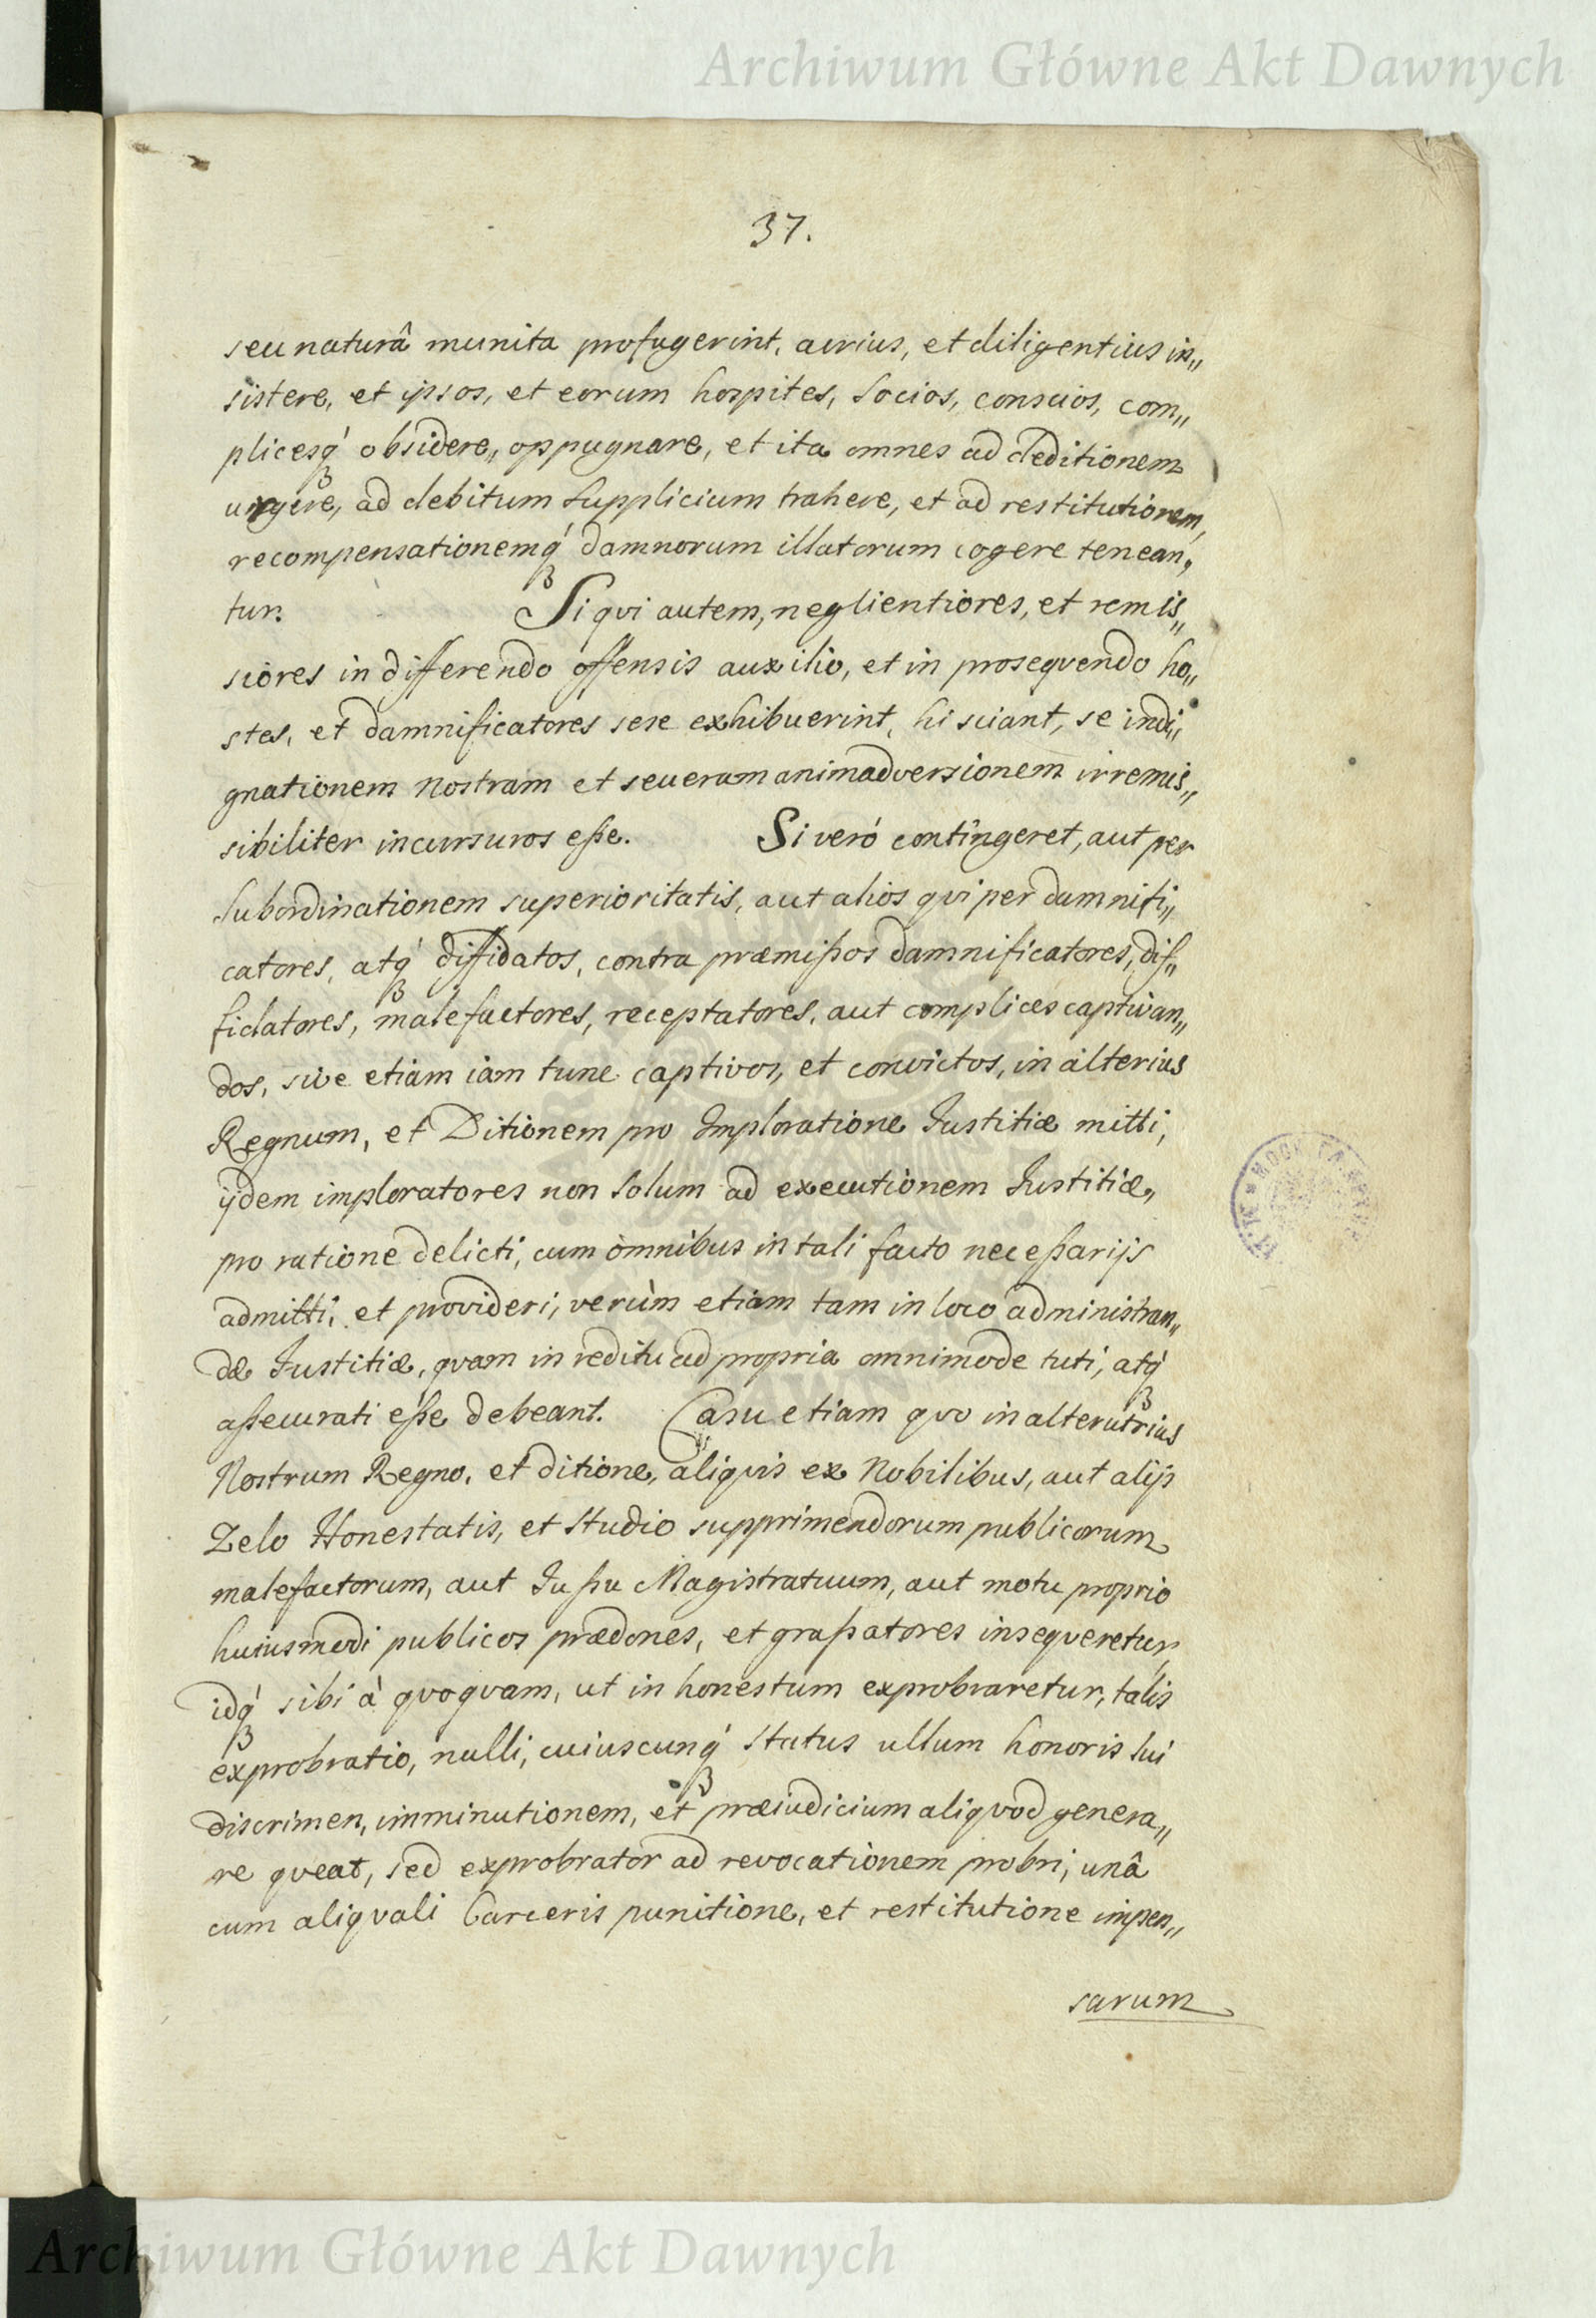 Archiwum Główne Akt Dawnych
37.
seu naturâ munita profugerint, acrius, et diligentius in„
sistere, et ipsos, et eorum hospites, Socios, conscios, com„
plicesq́ꝫ obsidere„ oppugnare, et ita omnes ad deditionem
urgere, ad debitum Supplicium trahere, et ad restitutionem,
recompensationemq́ꝫ damnorum illatorum cogere tenean„
tur. Si qvi autem, neglientiores, et remis„
siores in differendo offensis auxilio, et in proseqvendo ho„
stes, et damnificatores sese exhibuerint, hi sciant, se indi„
gnationem Nostram et seueram animadversionem irremis„
sibiliter incursuros eſse. Si veró contingeret, aut per
Subordinationem superioritatis, aut alios qvi per damnifi„
catores, atq́ꝫ diffidatos, contra præmiſsos damnificatores, dif„
fidatores, malefactores, receptatores, aut complices captivan„
dos, sive etiam iam tunc captivos, et convictos, in alterius
Regnum, et Ditionem pro Imploratione Justitiæ mitti,
ijdem imploratores non Solum ad executionem Justitiæ„
pro ratione delicti, cum omnibus in tali facto neceſsarijs
admitti, et provideri, verùm etiam tam in loco administran„
dæ Justitiæ, qvam in reditu ad propria omnimode tuti, atq́ꝫ
aſsecurati eſse debeant. Casu etiam qvo in alterutrius
Nostrum Regno, et ditione, aliqvis ex Nobilibus, aut alijs
Zelo Honestatis, et Studio supprimendorum publicorum
malefactorum, aut Juſsu Magistratuum, aut motu proprio
huiusmodi publicos prædones, et graſsatores inseqveretur,
idq́ꝫ sibi à qvoqvam, ut in honestum exprobraretur, talis
exprobratio, nulli, cuiuscunq́ꝫ Status ullum honoris sui
discrimen, imminutionem, et præiudicium aliqvod genera„
re qveat, sed exprobrator ad revocationem probri, unâ
cum aliqvali Carceris punitione, et restitutione impen„
sarum
Archiwum Główne Akt Dawnych